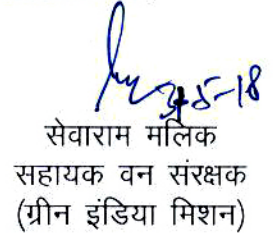 31-5-18
सेवाराम मलिक
सहायक वन संरक्षक
(ग्रीन इंडिया मिशन)